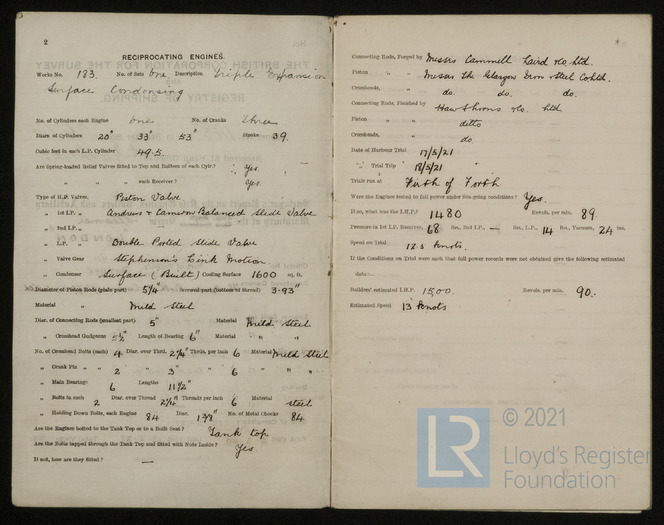 2
RECIPROCATING ENGINES.
Works No. 183. No. of Sets One Description Triple Expansion
Surface Condensing
No. of Cylinders each Engine One No. of Cranks Three
Diars. of Cylinders 20" 33" 53" Stroke 39.
Cubic feet in each L.P. Cylinder 49.5.
Are Spring-loaded Relief Valves fitted to Top and Bottom of each Cylr.? Yes
" " " each Receiver? Yes
Type of H.P. Valves, Piston Valve
" 1st I.P. " Andrews & Cameron Balanced Slide Valve
" 2nd I.P. " —
" L.P. " Double Ported Slide Valve
" Valve Gear Stephenson's Link Motion
" Condenser Surface (Built) Cooling Surface 1600 sq. ft.
Diameter of Piston Rods (plain part) 5¼" Screwed part (bottom of thread) 3.93"
Material " Mild Steel
Diar. of Connecting Rods (smallest part) 5" Material Mild Steel
" Crosshead Gudgeons 5½" Length of Bearing 6" Material " "
No. of Crosshead Bolts (each) 4 Diar. over Thrd. 2¼" Thrds. per inch 6 Material Mild Steel
" Crank Pin " " 2 " 3" " 6 " " "
" Main Bearings 6 Lengths 11½"
" Bolts in each 2 Diar. over Thread 2¼" Threads per inch 6 Material Steel
" Holding Down Bolts, each Engine 84 Diar. 1⅜" No. of Metal Chocks 84
Are the Engines bolted to the Tank Top or to a Built Seat? Tank top
Are the Bolts tapped through the Tank Top and fitted with Nuts Inside? Yes.
If not, how are they fitted? —
Connecting Rods, Forged by Messrs Cammell Laird & Co. Ltd.
Piston " " Messrs The Glasgow Iron & Steel Co Ltd.
Crossheads, " do. do. do.
Connecting Rods, Finished by Hawthorns & Co. Ltd
Piston " " ditto
Crossheads, " do
Date of Harbour Trial 17/5/21
" Trial Trip 18/5/21
Trials run at Firth of Forth
Were the Engines tested to full power under Sea-going conditions? Yes.
If so, what was the I.H.P.? 1480 Revols. per min. 89.
Pressure in 1st I.P. Receiver, 68 lbs., 2nd I.P., — lbs., L.P., 14 lbs., Vacuum, 24 ins.
Speed on Trial 12.5 knots.
If the Conditions on Trial were such that full power records were not obtained give the following estimated
data:—
Builders' estimated I.H.P. 1500 Revols. per min. 90.
Estimated Speed 13 knots
LR
© 2021
Lloyd's Register
Foundation